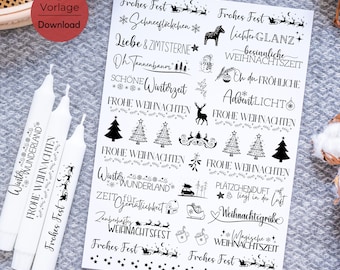 Vorlage
Download
Frohes Fest
Frohes Fest
Schneeflöckchen
Lichter GLANZ
Liebe & ZIMTSTERNE
besinnliche
WEIHNACHTSZEIT
Oh Tannenbaum
Oh du Fröhliche
SCHÖNE Winterzeit
Advent LICHT
FROHE WEIHNACHTEN
FROHE WEIHNACHTEN
FROHE WEIHNACHTEN
FROHE WEIHNACHTEN
Winter
WUNDERLAND
PLÄTZCHENDUFT
liegt in der Luft
ZEIT
Weihnachtsgrüße
Zauberhaftes
WEIHNACHTSFEST
Magische
WEIHNACHTSZEIT
Frohes Fest
Frohes Fest
Winter
WUNDERLAND
FROHE WEIHNACHTEN
Frohes Fest